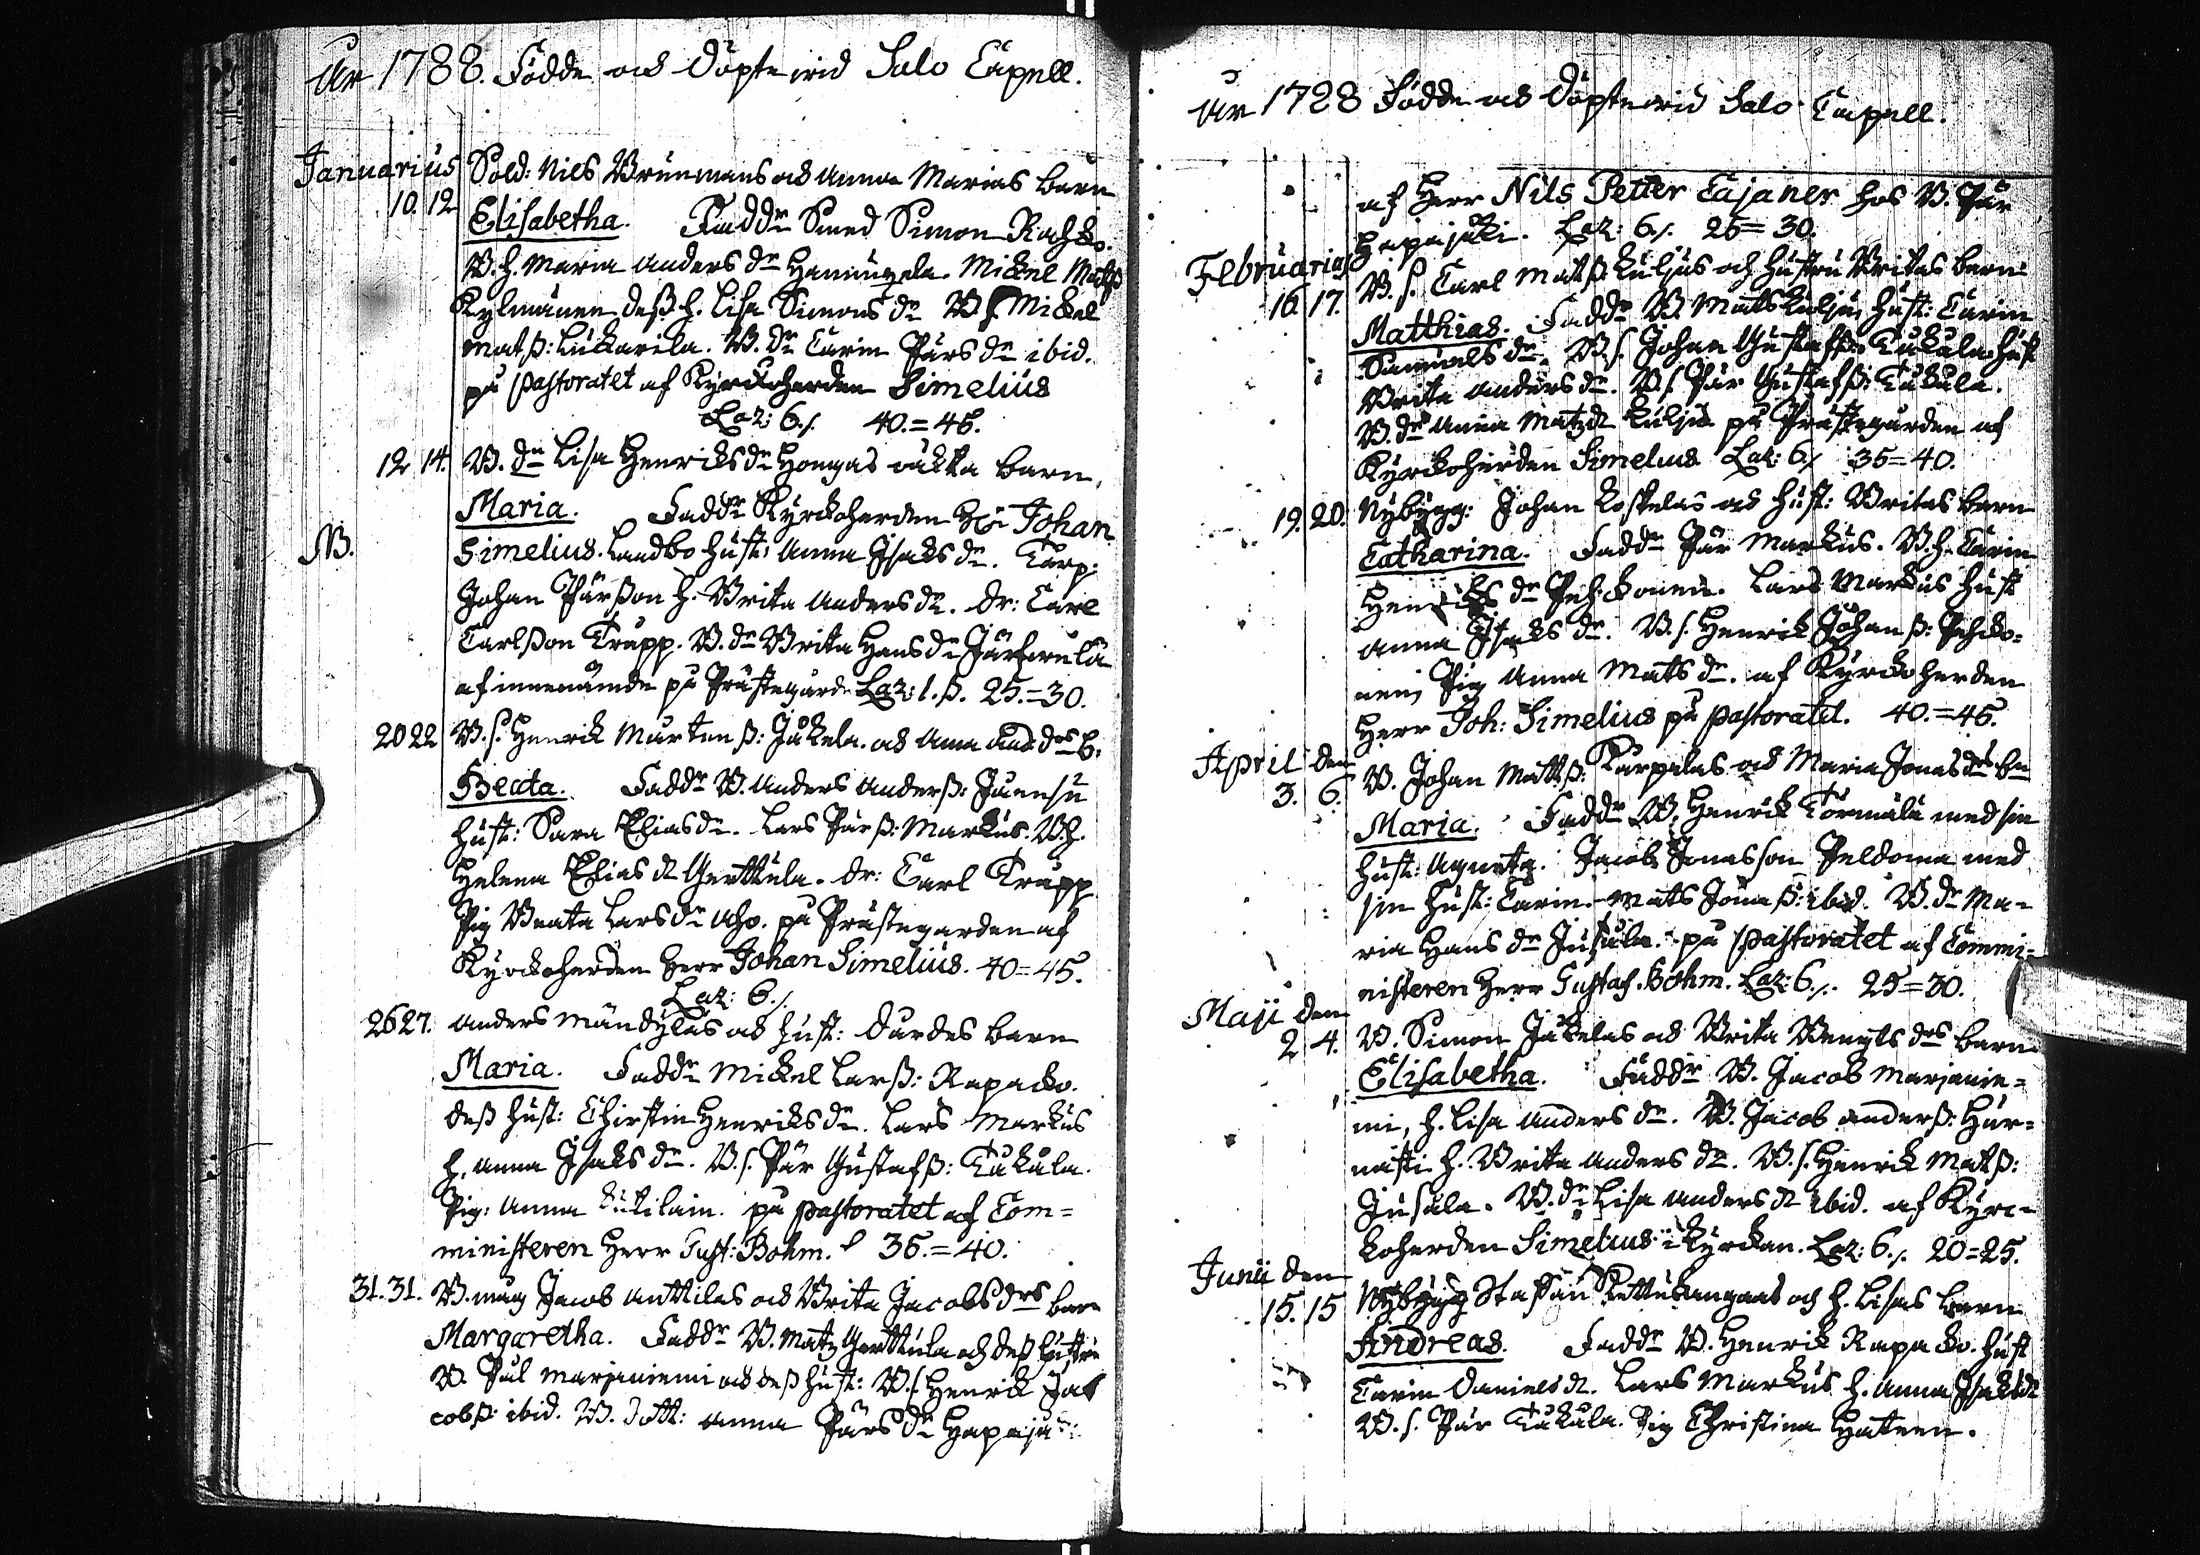 År 1788. Födde och Döpte wid Salo Capell.
Januarius Sold: Nils Brunmans och Anna Marias barn
10. 12 Elisabetha. Faddr Smed Simon Rahko.
B. h. Maria Anders dr Hamingela. Mickel Matß
Kylmänen deß h. Lisa Simons dr B. S. Mickel
Matß: Luckarila. B. dr Carin Pärs dr ibid.
på pastoratet af Kyrckoherden Simelius
Laz: 6./. 40.=46.
12 14. B. dr Lisa Henricks dr Hongas oäkta barn,
Maria. Faddr Kyrckoherden Hr Johan
NB. Simelius. Landbo Hust: Anna Isaks dr. Corp:
Johan Pärßon h. Brita Anders dr. dr: Carl
Carlßon Trapp. B. dr Brita Hans dr Järfwelä
af innenämde på Prästegård. Laz: 1. ß. 25.=30.
20 22 B. S. Henrik Mårten ß: Jäkela. och Anna And: drs b.
Beata. Faddr B. Anders Anderß: Juensu
Hust: Sara Elias dr. Lars Pär ß: Markus. B. h.
Helena Elias dr Gerttula. dr: Carl Trapp
Pig Beata Lars dr Aho. på Prästegarden af
Kyrckoherden Herr Johan Simelius. 40=45.
Laz: 6./.
26 27. Anders Mändyläs och Hust: Durdes barn
Maria. Faddr Mickel Larß: Rapacko.
deß Hust: Chirstin Henriks dr. Lars Markus
h. Anna Isaks dr. B. S. Pär Gustafß: Tukula.
Pig: Anna på pastoratet af Com=
ministeren Herr Gust: Bohm. 36.=40.
31. 31. B. mag Jacob Anttilas och Brita Jacobs drs barn
Margaretha. Faddr B. Matz Gerttula och deß hustru
B. Pål Marjaniemi och deß Hust: B. S. Henrik Ja
cobß: ibid. B. Dott: Anna Pärs dr Hapaja
År 1728 Födde och Döpte wid Salo Capell.
af Herr Nils Petter Cajaner hos B. Pär
Hapajäki. Laz: 6./. 26=30.
Februarius B. S. Carl Matß: Kuljus och Hustru Britas barn
16. 17. Matthias. Faddr B. Mats Kuljus Hust: Carin
Samuels dr. B. S. Johan Gustafß: Tukula Hust
Brita Anders dr. B. S. Pär Gustafß: Tukula.
B. dr Anna Matz dr Kuljus på Prästegården af
Kyrckoherden Simelius Laz: 6./. 35=40.
19. 20. Nybygg: Johan Koskelas och Hust: Britas barn
Catharina. Faddr Pär Markus. B. h. Carin
Henriks dr Pehckonen. Lars Markus Hust
Anna Isaks dr. B. S. Henrik Johan ß: Pehcko=
nen, Pig Anna Mats dr. af Kyrckoherden
Herr Joh: Simelius på pastoratet. 40.=45.
April den B. Johan Matts ß: Karpilas och Maria Jonas drs bn
3. 6. Maria. Faddr B. Henrik Törmälä med sin
Hust: Agneta. Jacob Jonasson Peldoma med
sin Hust: Carin. Mats Jonaß: ibid. B. dr Ma=
ria Hans dr Jusula. på pastoratet af Commi=
nisteren Herr Gustaf. Bohm. Laz: 6./. 25=30.
Maji den
2 4. B. Simon Jäkelas och Brita Bengts drs barn
Elisabetha. Faddr B. Jacob Marjanie=
mi, h. Lisa Anders dr. B. Jacob Anderß: Här=
mästi h. Brita Anders dr. B. S. Henrik Matß:
Jusula. B. dr Lisa Anders dr ibid. af Kyrc=
koherden Simelius i Kyrckan. Laz: 6./. 20=25.
Junii den
15. 15 Nybygg Staffan Kettukangaas och h. Lisas barn
Andreas. Faddr B. Henrik Rapacko. Hust
Carin Daniels dr. Lars Markus h. Anna Isaks dr
B. S. Pär Tukula. Pig Christina Hatunen.